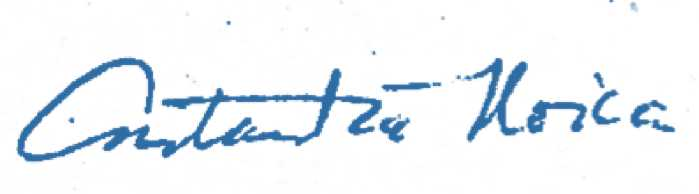 Constantin Noica